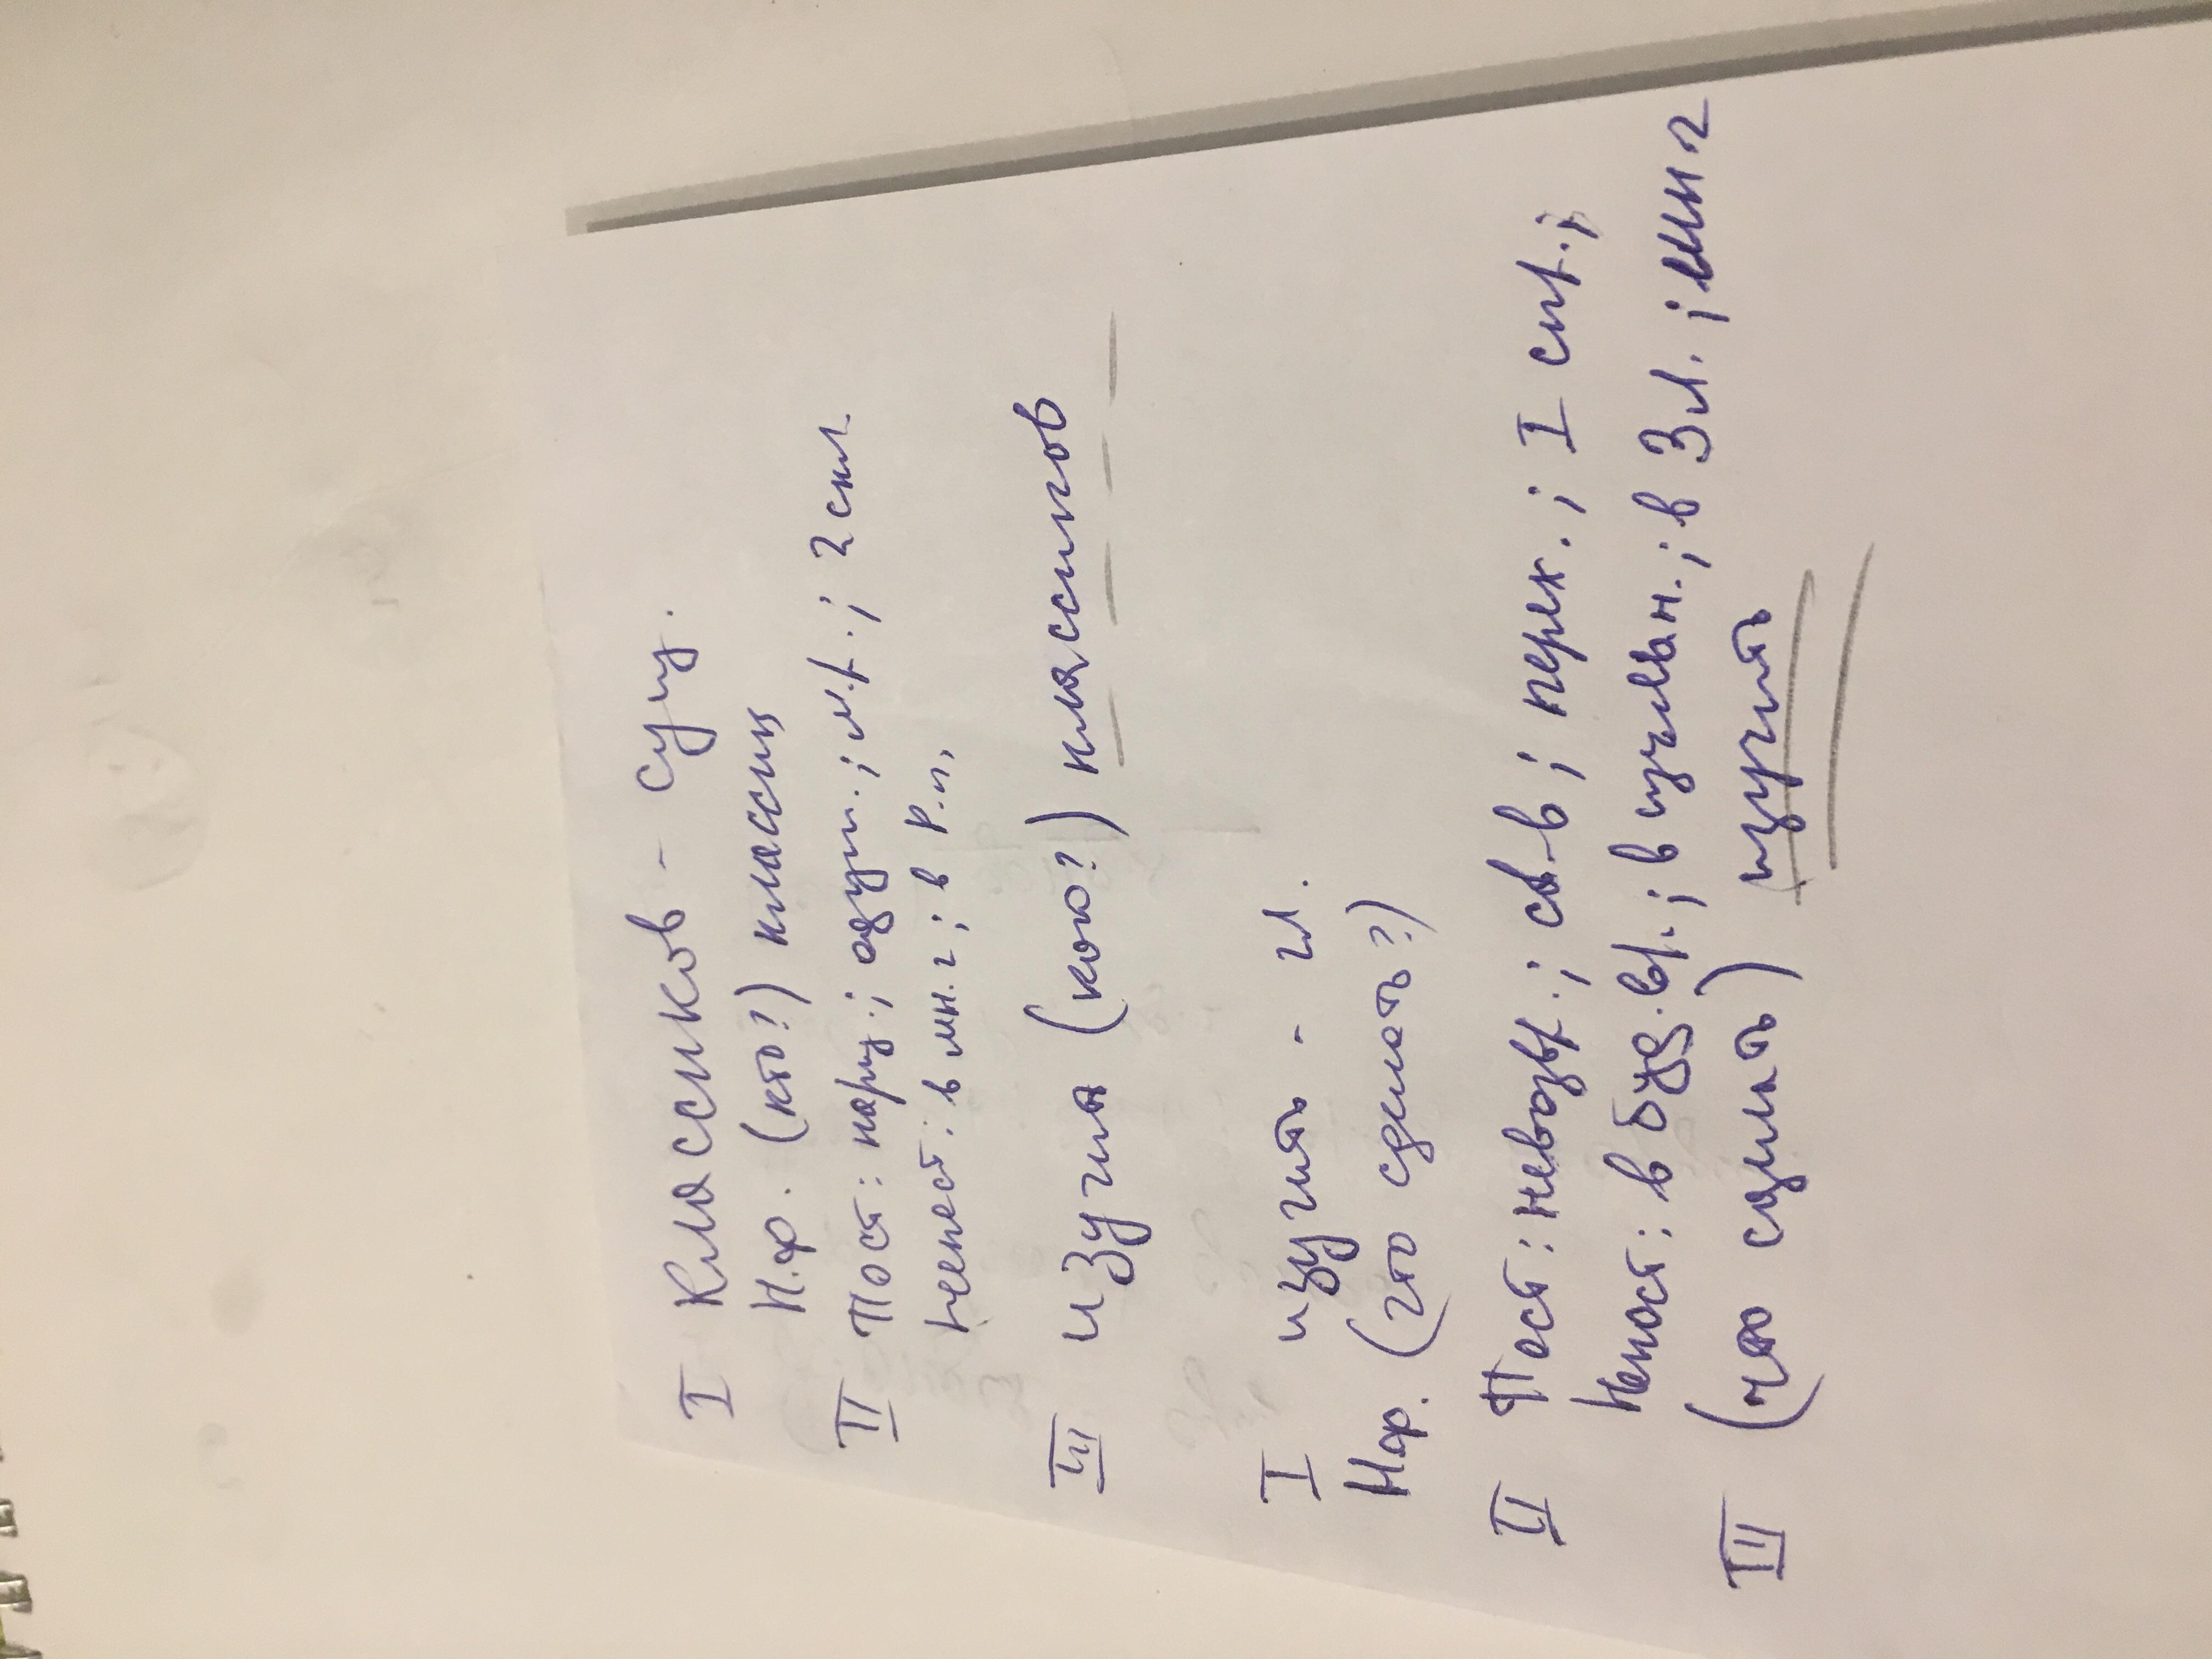 I Классиков - сущ.
Н.ф. (кто?) классик
II Пост: нариц.; одуш.; м.р.; 2 скл.
Непост: в мн.ч; в Р.п.
III изучил (кого?) классиков
I изучить - гл.
Н.ф. (что сделать?)
II Пост: невозвр.; св.в; перех.; I спр.;
Непост: в буд.вр.; в изъяв.н.; в 3 л.;
III (что сделать) изучить